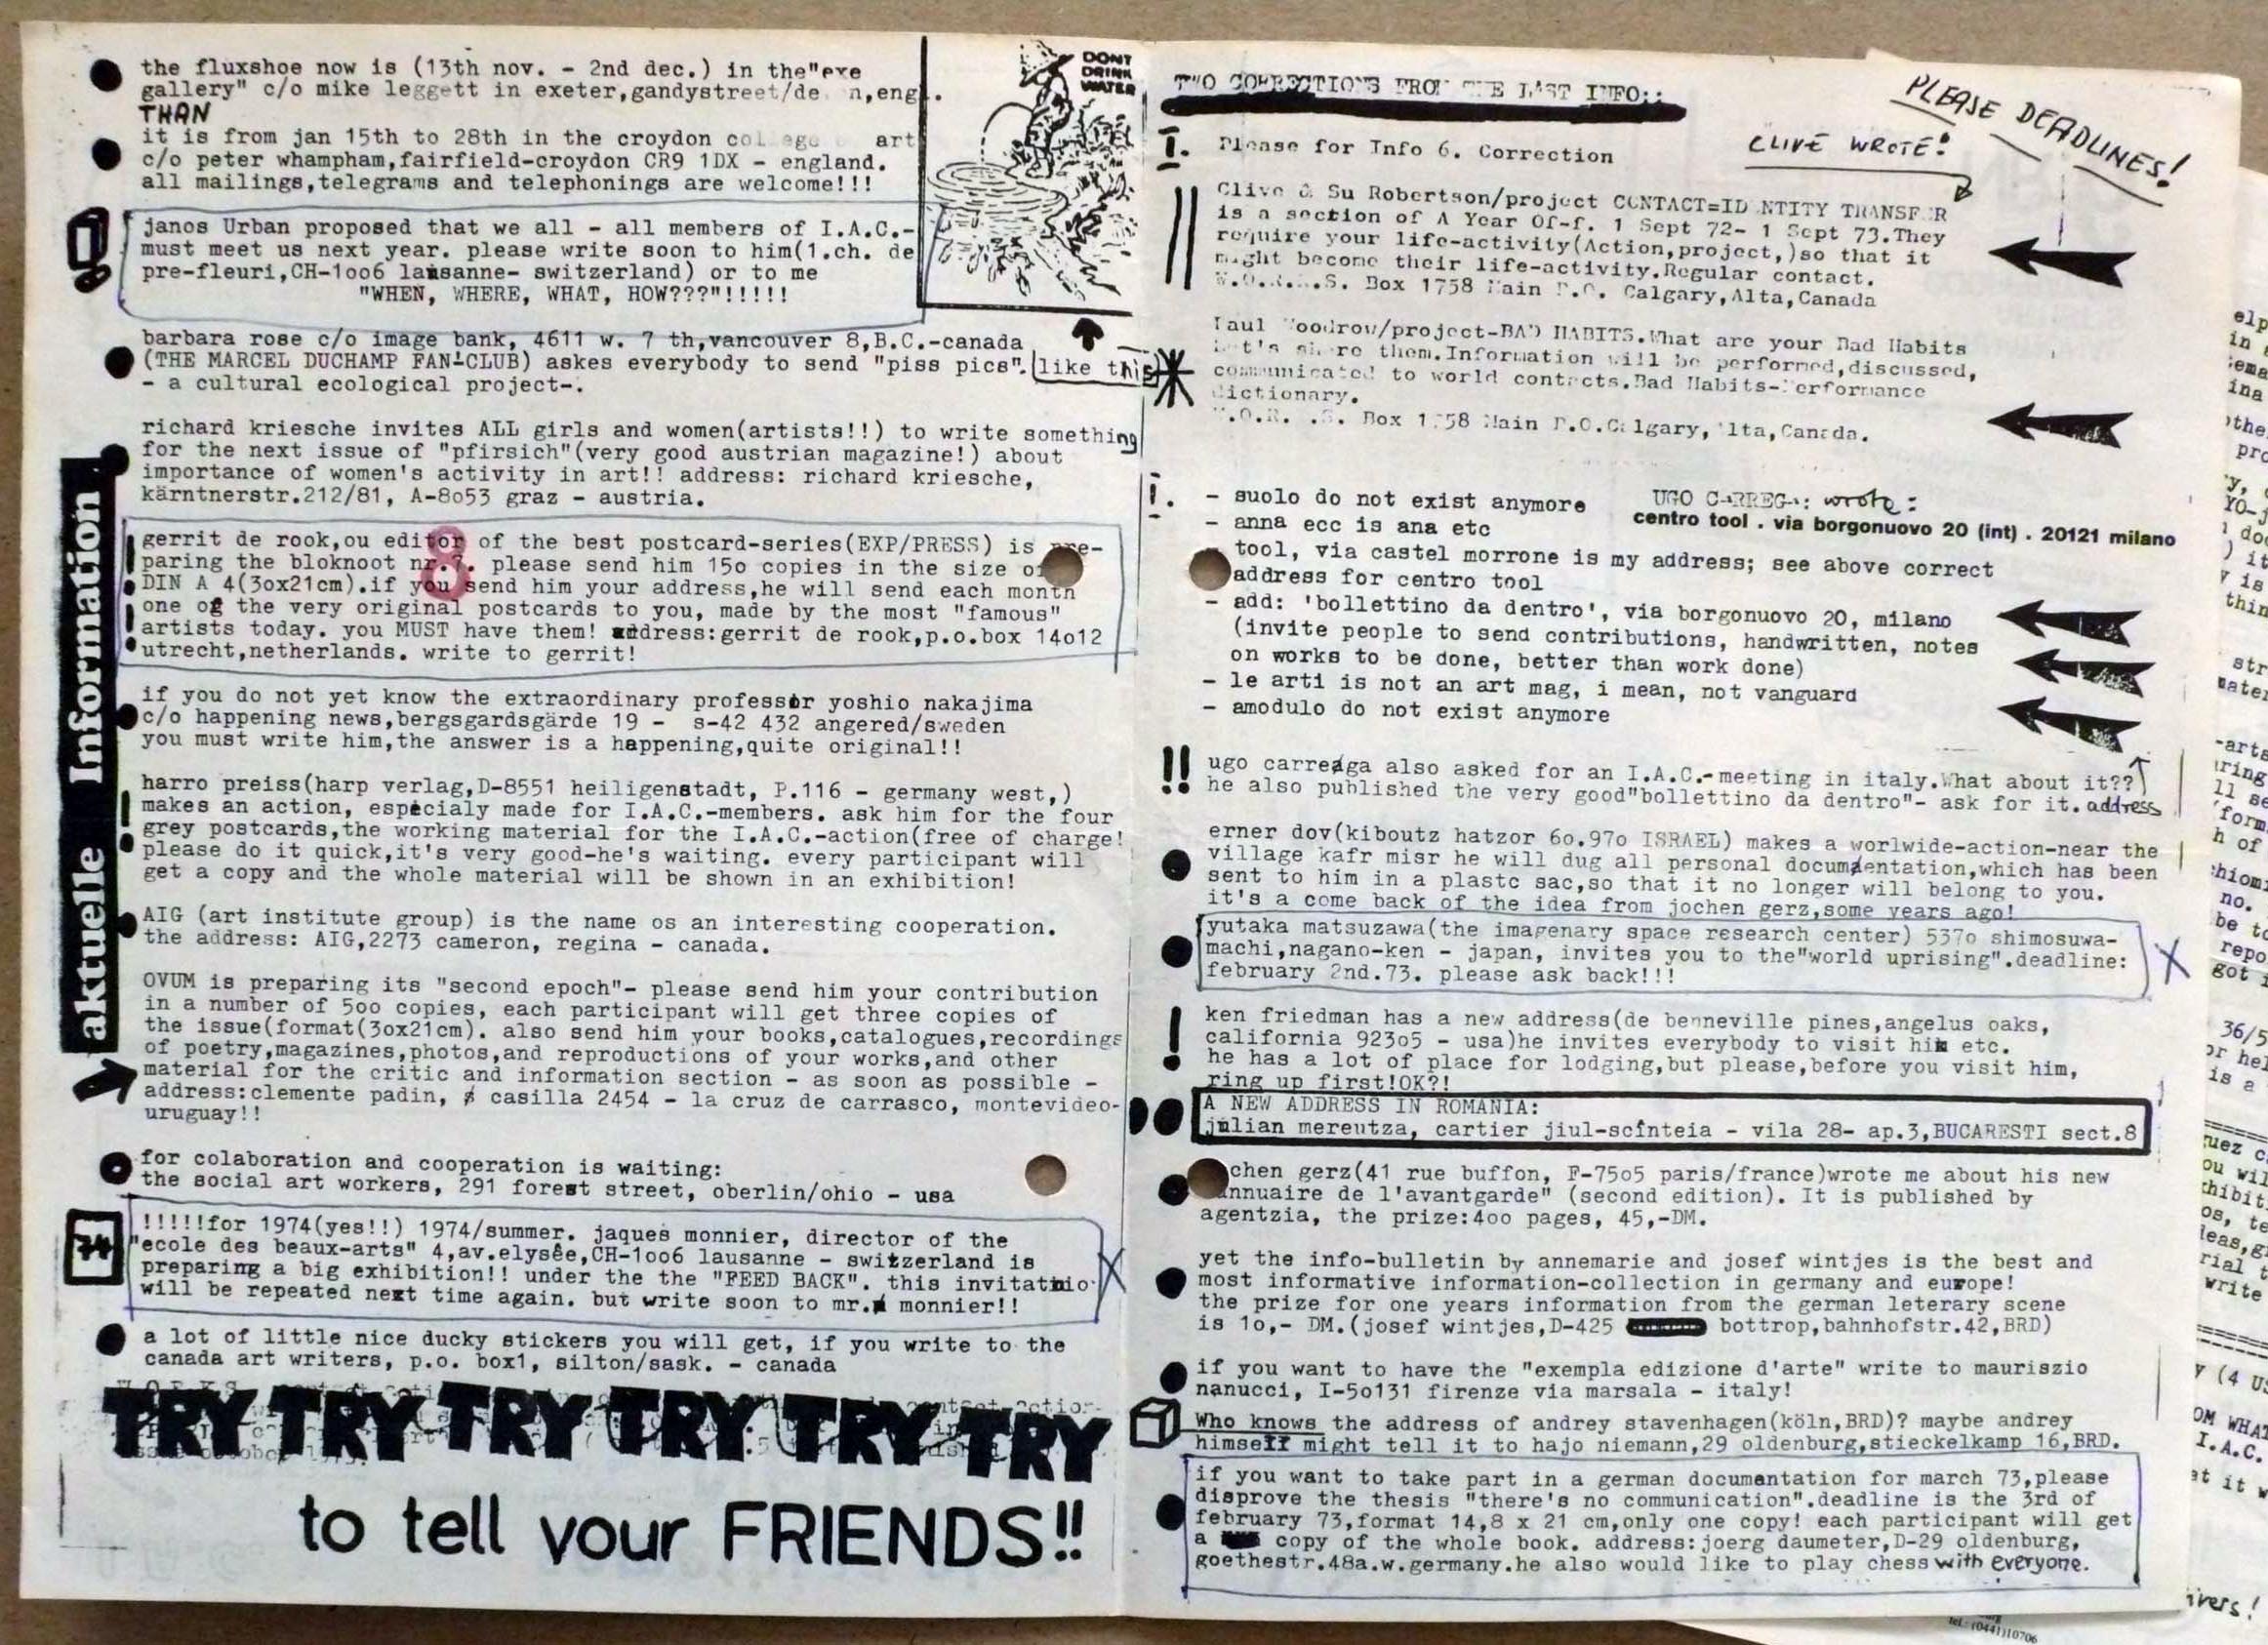 the fluxshoe now is (13th nov. - 2nd dec.) in the"exe
gallery" c/o mike leggett in exeter,gandystreet/de n,engl.
THAN
it is from jan 15th to 28th in the croydon college art
c/o peter whampham,fairfield-croydon CR9 1DX - england.
all mailings,telegrams and telephonings are welcome!!!
DONT
DRINK
WATER
janos Urban proposed that we all - all members of I.A.C.-
must meet us next year. please write soon to him(1.ch. de
pre-fleuri,CH-1oo6 lausanne- switzerland) or to me
"WHEN, WHERE, WHAT, HOW???"!!!!!
barbara rose c/o image bank, 4611 w. 7 th,vancouver 8,B.C.-canada
(THE MARCEL DUCHAMP FAN-CLUB) askes everybody to send "piss pics". like this
- a cultural ecological project-.
richard kriesche invites ALL girls and women(artists!!) to write something
for the next issue of "pfirsich"(very good austrian magazine!) about
importance of women's activity in art!! address: richard kriesche,
kärntnerstr.212/81, A-8o53 graz - austria.
aktuelle Information
gerrit de rook,ou editor of the best postcard-series(EXP/PRESS) is pre-
paring the bloknoot nr. 8 please send him 15o copies in the size of
DIN A 4(3ox21cm).if you send him your address,he will send each month
one of the very original postcards to you, made by the most "famous"
artists today. you MUST have them! address:gerrit de rook,p.o.box 14o12
utrecht,netherlands. write to gerrit!
if you do not yet know the extraordinary professor yoshio nakajima
c/o happening news,bergsgardsgärde 19 - s-42 432 angered/sweden
you must write him,the answer is a happening,quite original!!
harro preiss(harp verlag,D-8551 heiligenstadt, P.116 - germany west,)
makes an action, especialy made for I.A.C.-members. ask him for the four
grey postcards,the working material for the I.A.C.-action(free of charge!
please do it quick,it's very good-he's waiting. every participant will
get a copy and the whole material will be shown in an exhibition!
AIG (art institute group) is the name os an interesting cooperation.
the address: AIG,2273 cameron, regina - canada.
OVUM is preparing its "second epoch"- please send him your contribution
in a number of 5oo copies, each participant will get three copies of
the issue(format(3ox21cm). also send him your books,catalogues,recordings
of poetry,magazines,photos,and reproductions of your works,and other
material for the critic and information section - as soon as possible -
address:clemente padin, casilla 2454 - la cruz de carrasco, montevideo-
uruguay!!
for colaboration and cooperation is waiting:
the social art workers, 291 forest street, oberlin/ohio - usa
74
!!!!!for 1974(yes!!) 1974/summer. jaques monnier, director of the
"ecole des beaux-arts" 4,av.elysée,CH-1oo6 lausanne - switzerland is
preparing a big exhibition!! under the the "FEED BACK". this invitatnio
will be repeated next time again. but write soon to mr. monnier!!
a lot of little nice ducky stickers you will get, if you write to the
canada art writers, p.o. box1, silton/sask. - canada
TRY TRY TRY TRY TRY TRY
to tell your FRIENDS!!
TWO CORRECTIONS FROM THE LAST INFO::
PLEASE DEADLINES!
I. Please for Info 6. Correction
CLIVE WROTE:
Clive & Su Robertson/project CONTACT=IDENTITY TRANSFER
is a section of A Year Of-f. 1 Sept 72- 1 Sept 73.They
require your life-activity(Action,project,)so that it
might become their life-activity.Regular contact.
W.O.R.K.S. Box 1758 Main P.O. Calgary,Alta,Canada
Paul Woodrow/project-BAD HABITS.What are your Bad Habits
Let's share them.Information will be performed,discussed,
communicated to world contacts.Bad Habits-Performance
dictionary.
W.O.R. .S. Box 1758 Main P.O.Calgary,Alta,Canada.
I. - suolo do not exist anymore
UGO CARREGA: wrote:
centro tool . via borgonuovo 20 (int) . 20121 milano
- anna ecc is ana etc
tool, via castel morrone is my address; see above correct
address for centro tool
- add: 'bollettino da dentro', via borgonuovo 20, milano
(invite people to send contributions, handwritten, notes
on works to be done, better than work done)
- le arti is not an art mag, i mean, not vanguard
- amodulo do not exist anymore
!! ugo carrega also asked for an I.A.C.-meeting in italy.What about it??
he also published the very good"bollettino da dentro"- ask for it. address
erner dov(kiboutz hatzor 6o.97o ISRAEL) makes a worlwide-action-near the
village kafr misr he will dug all personal documentation,which has been
sent to him in a plastc sac,so that it no longer will belong to you.
it's a come back of the idea from jochen gerz,some years ago!
yutaka matsuzawa(the imagenary space research center) 537o shimosuwa-
machi,nagano-ken - japan, invites you to the"world uprising".deadline:
february 2nd.73. please ask back!!! X
! ken friedman has a new address(de benneville pines,angelus oaks,
california 923o5 - usa)he invites everybody to visit him etc.
he has a lot of place for lodging,but please,before you visit him,
ring up first!OK?!
A NEW ADDRESS IN ROMANIA:
julian mereutza, cartier jiul-scînteia - vila 28- ap.3,BUCARESTI sect.8
chen gerz(41 rue buffon, F-75o5 paris/france)wrote me about his new
annuaire de l'avantgarde" (second edition). It is published by
agentzia, the prize:4oo pages, 45,-DM.
yet the info-bulletin by annemarie and josef wintjes is the best and
most informative information-collection in germany and europe!
the prize for one years information from the german leterary scene
is 1o,- DM.(josef wintjes,D-425 bottrop,bahnhofstr.42,BRD)
if you want to have the "exempla edizione d'arte" write to mauriszio
nanucci, I-5o131 firenze via marsala - italy!
Who knows the address of andrey stavenhagen(köln,BRD)? maybe andrey
himself might tell it to hajo niemann,29 oldenburg,stieckelkamp 16,BRD.
if you want to take part in a german documentation for march 73,please
disprove the thesis "there's no communication".deadline is the 3rd of
february 73,format 14,8 x 21 cm,only one copy! each participant will get
a copy of the whole book. address:joerg daumeter,D-29 oldenburg,
goethestr.48a.w.germany.he also would like to play chess with everyone.